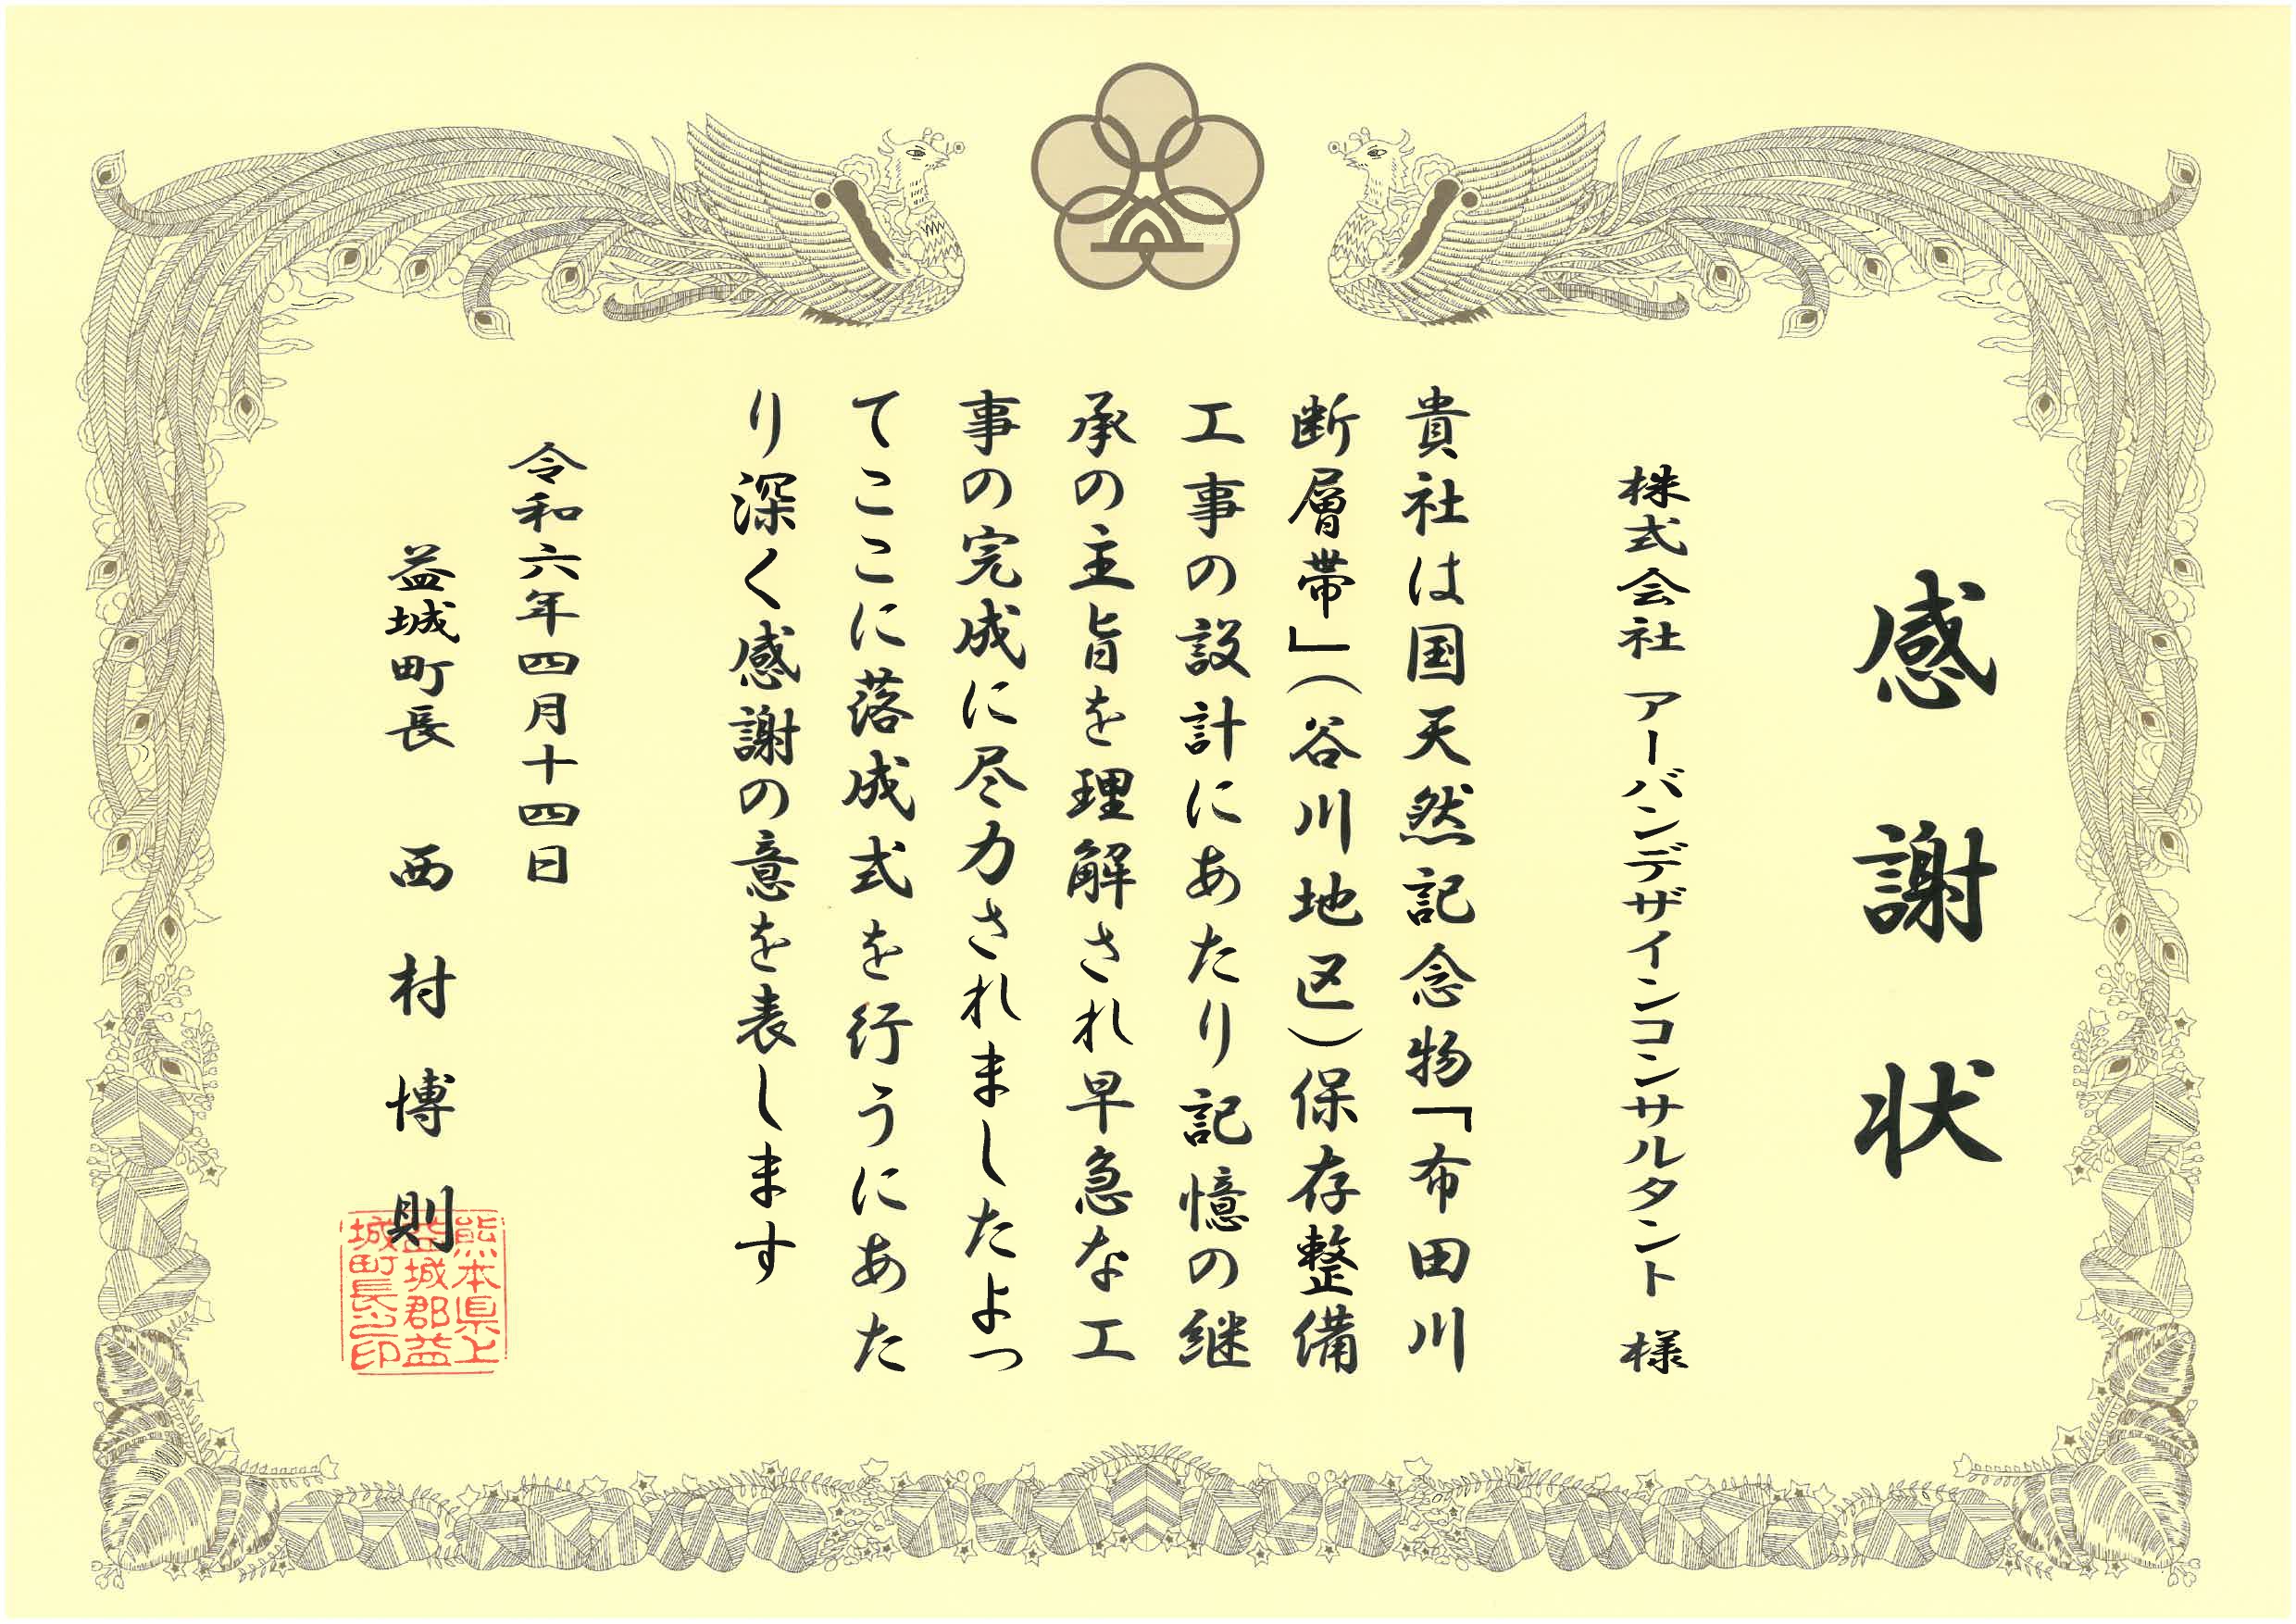 感謝状
株式会社 アーバンデザインコンサルタント 様
貴社は国天然記念物「布田川
断層帯」(谷川地区)保存整備
工事の設計にあたり記憶の継
承の主旨を理解され早急な工
事の完成に尽力されましたよっ
てここに落成式を行うにあた
り深く感謝の意を表します
令和六年四月十四日
益城町長 西村博則
熊本県上
益城郡益
城町長之印